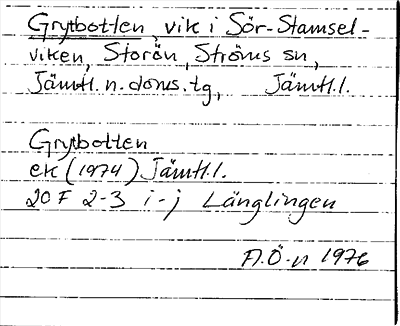 Grytbotten, vik i Sör-Stamsel-
viken, Storön, Ströms sn,
Jämtl. n. doms. tg, Jämtl. l.
Grytbotten
ek (1974) Jämtl. l.
20 F 2-3 i-j Länglingen
A.Ö-n 1976